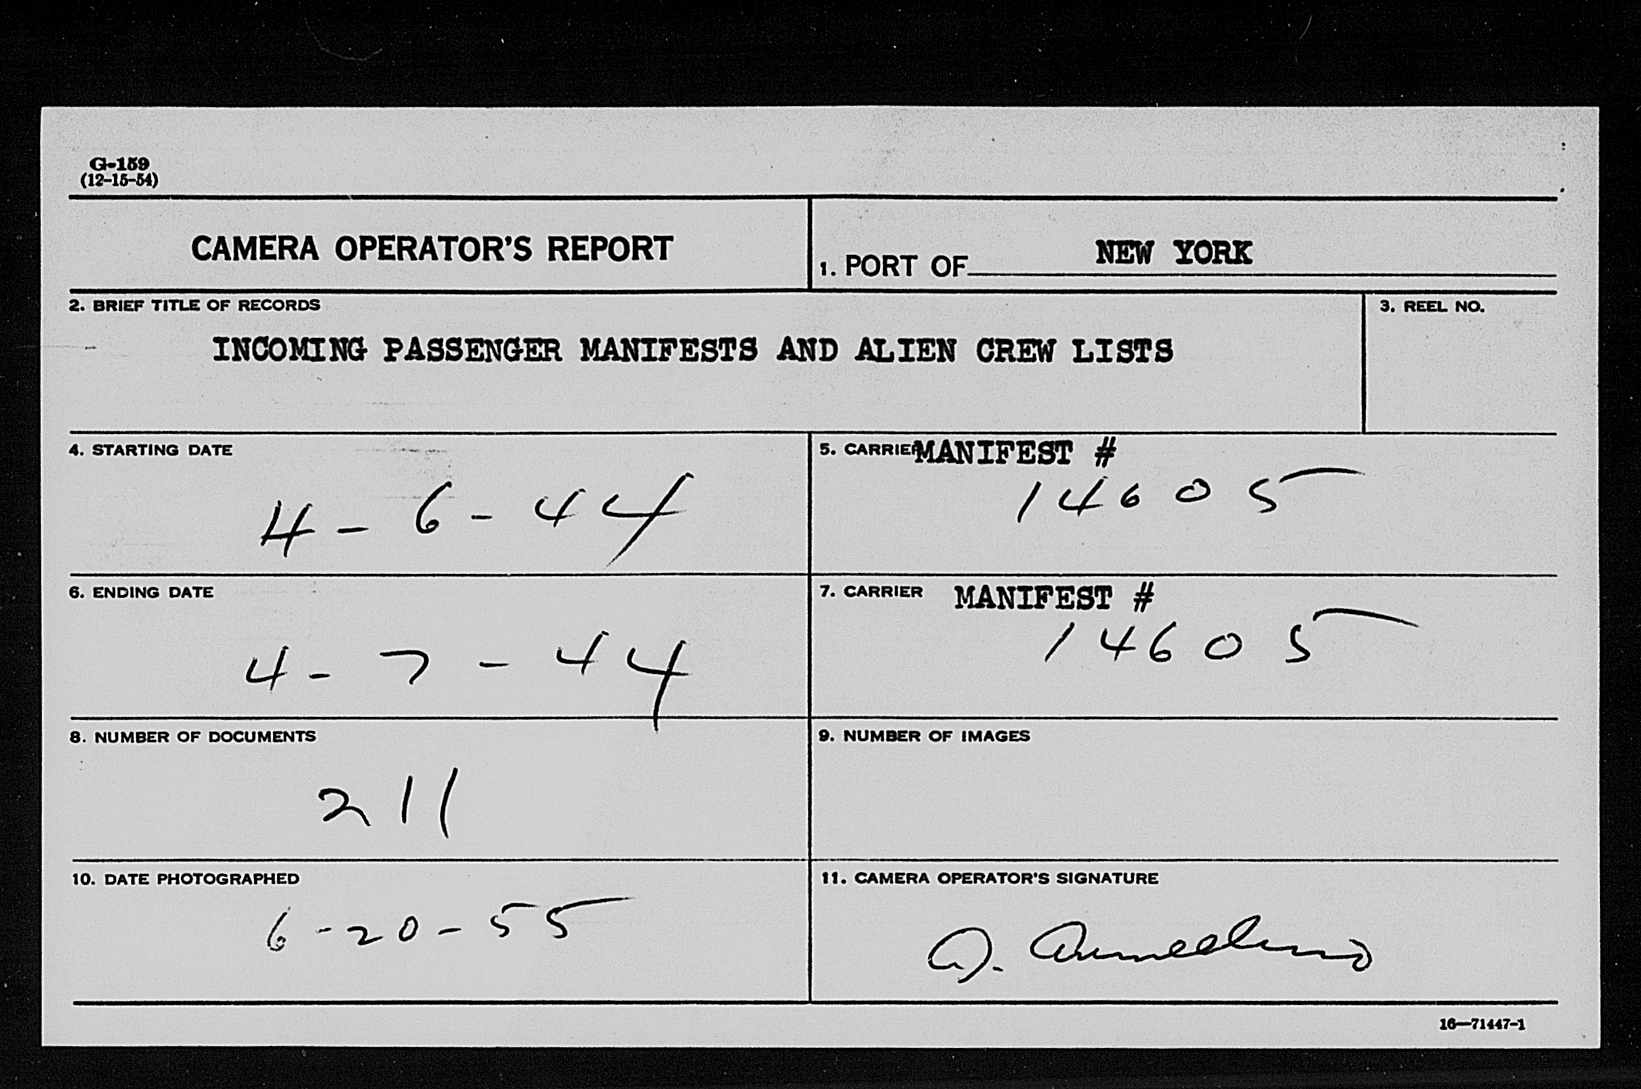 G-159
(12-15-54)
CAMERA OPERATOR'S REPORT
1. PORT OF NEW YORK
2. BRIEF TITLE OF RECORDS
INCOMING PASSENGER MANIFESTS AND ALIEN CREW LISTS
3. REEL NO.
4. STARTING DATE
4-6-44
5. CARRIER MANIFEST #
14605
6. ENDING DATE
4-7-44
7. CARRIER MANIFEST #
14605
8. NUMBER OF DOCUMENTS
211
9. NUMBER OF IMAGES
10. DATE PHOTOGRAPHED
6-20-55
11. CAMERA OPERATOR'S SIGNATURE
16—71447-1